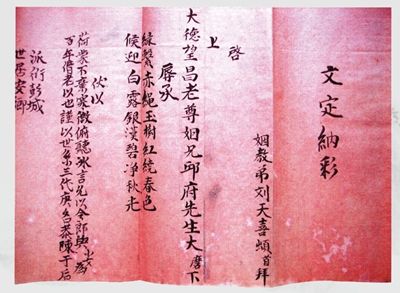 文定納彩
姻教弟刘天喜頓首拜
啓
上
大德望昌老尊姻兄邱府先生大麾下
辱承
綠鬢赤繩玉樹紅綂春色
候迎白露銀漢碧净秋光
伏以
荷蒙不棄寒微俯聽氷言允以令郎 為
百年偕老以也謹以世系三代庚名恭陳于后
派衍彭城
世居安鄉